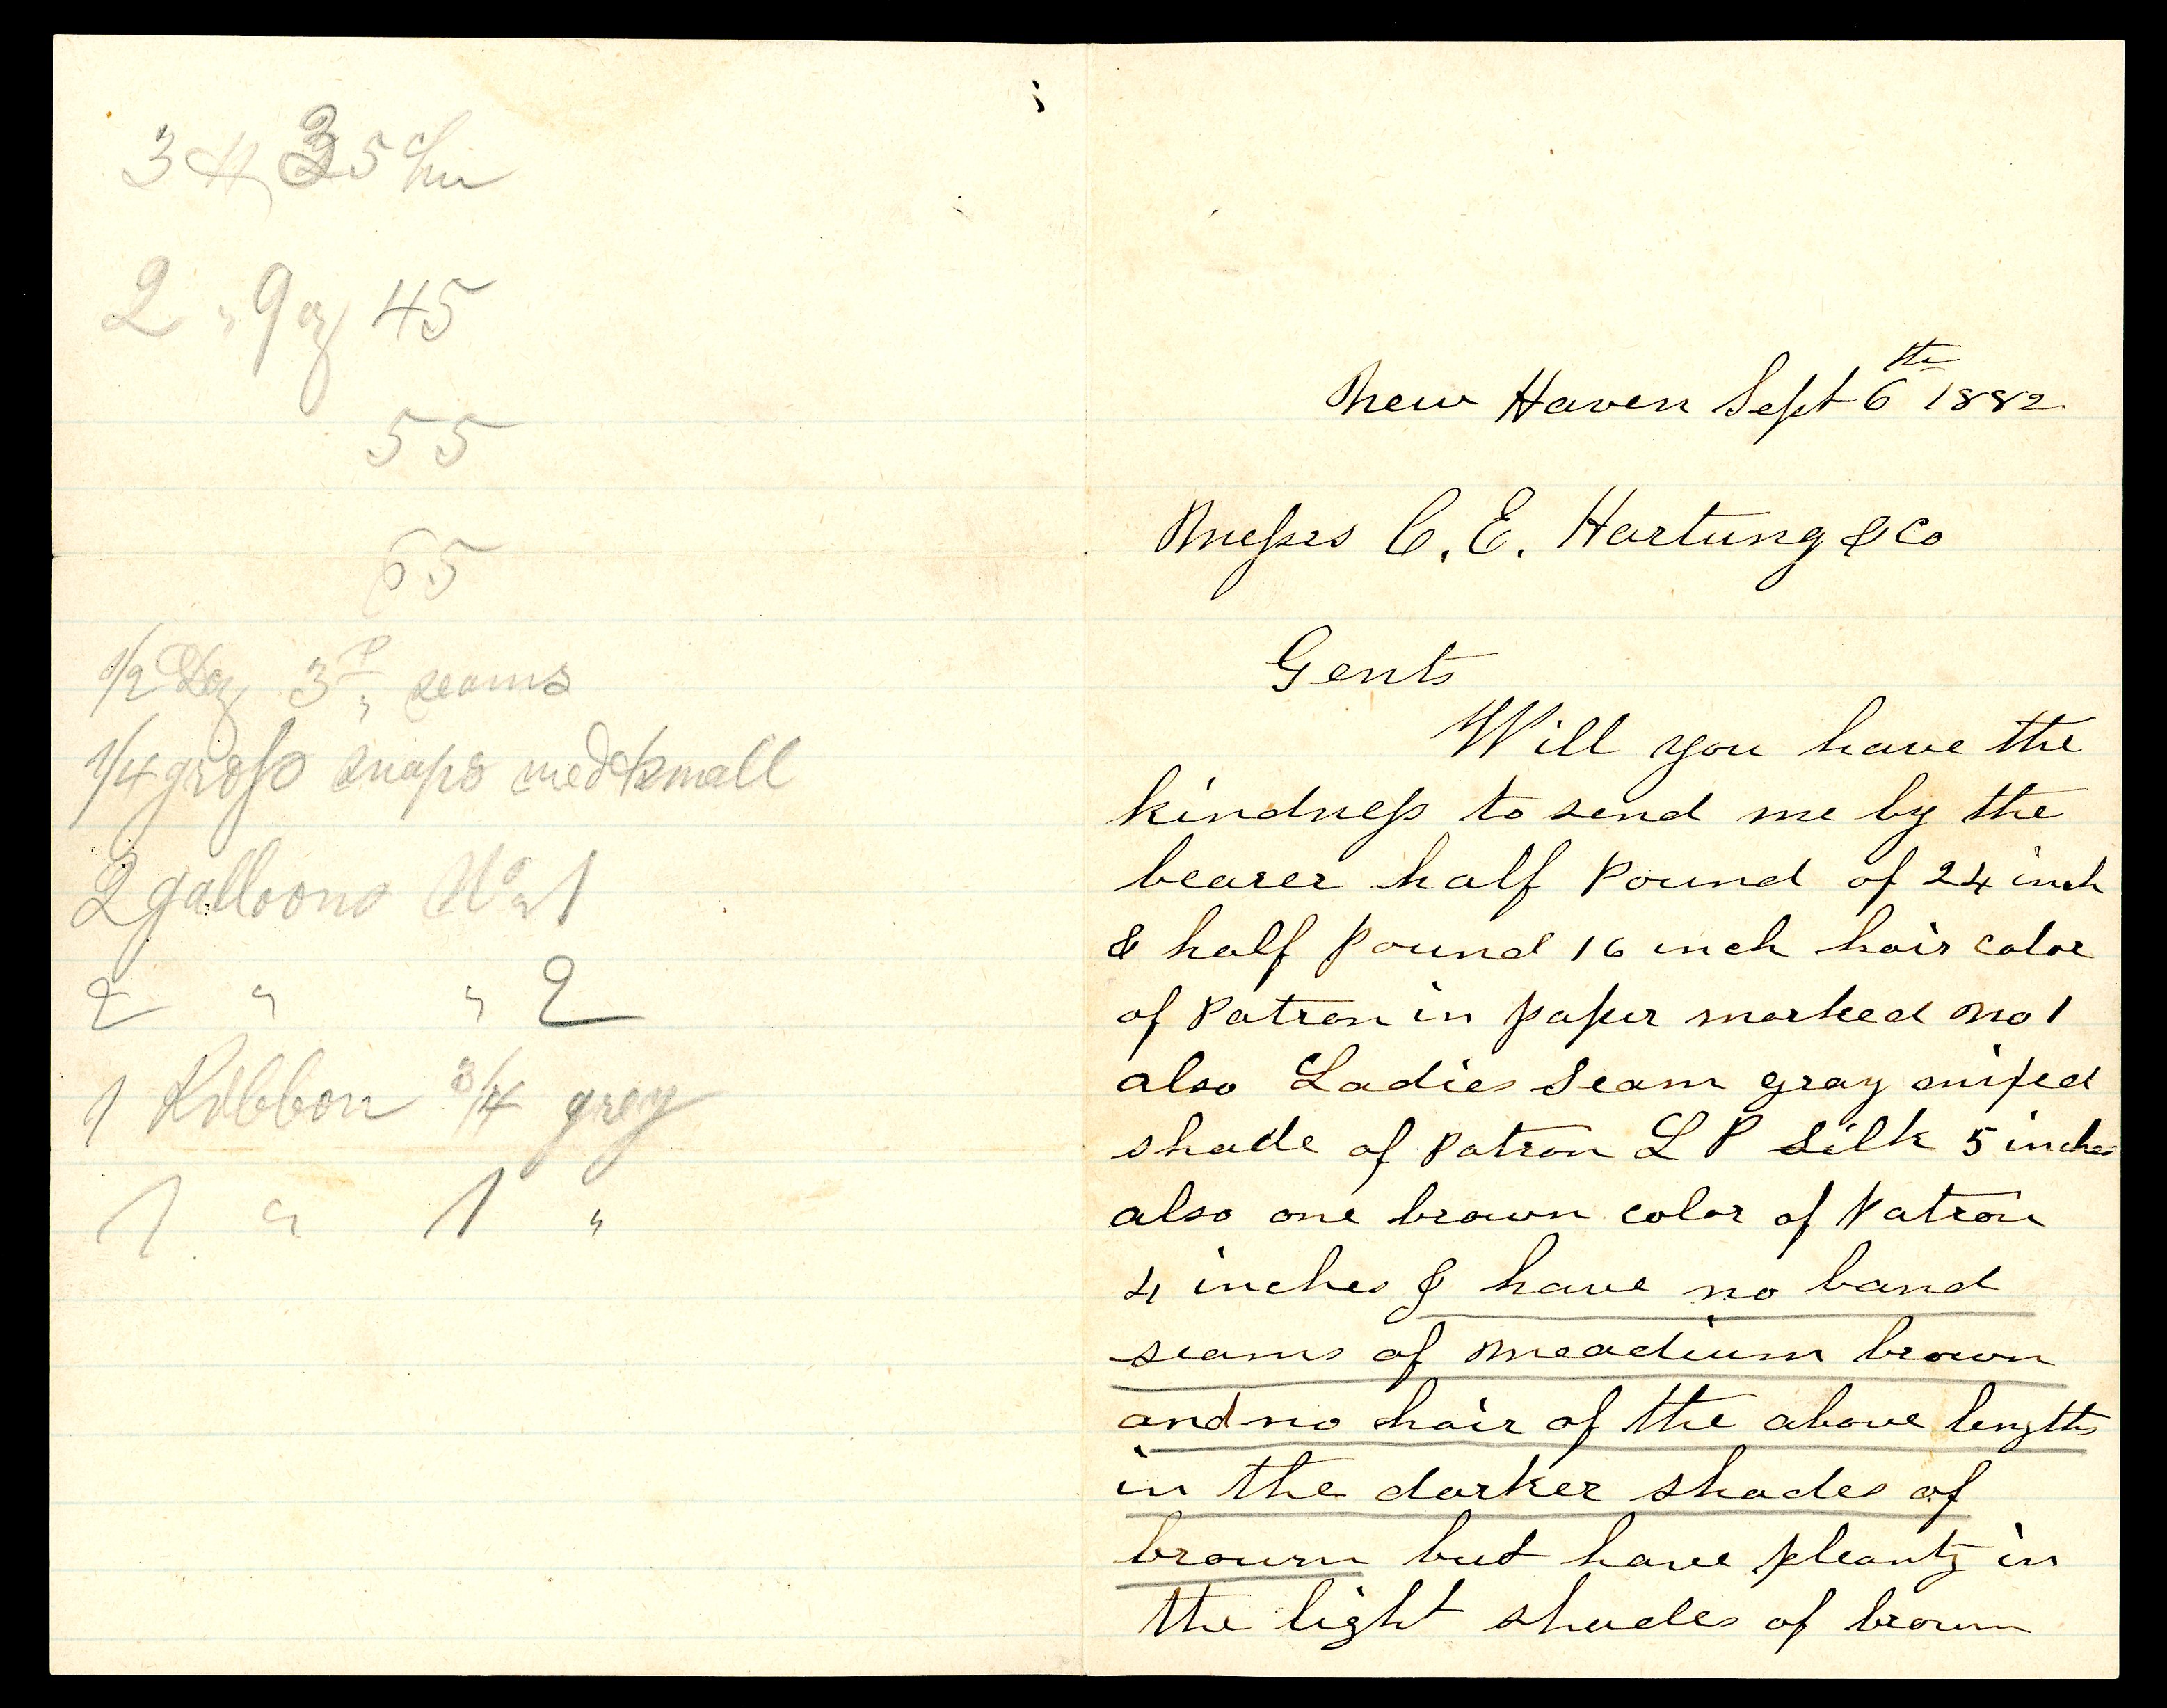 3 35
2 " 9 oz 45
55
65
1/2 Doz 3 P seams
1/4 gross snaps med & small
2 galloons No 1
2 " " 2
1 Ribbon 3/4 grey
1 " 1 "
New Haven Sept 6th 1882
Messrs C. E. Hartung & Co
Gents
Will you have the
kindness to send me by the
bearer half Pound of 24 inch
& half pound 16 inch hair color
of Patron in paper marked No 1
also Ladies Seam gray mixed
shade of Patron L P Silk 5 inches
also one brown color of Patron
4 inches I have no band
seams of meadium brown
and no hair of the above lengths
in the darker shades of
brown but have pleanty in
the light shades of brown